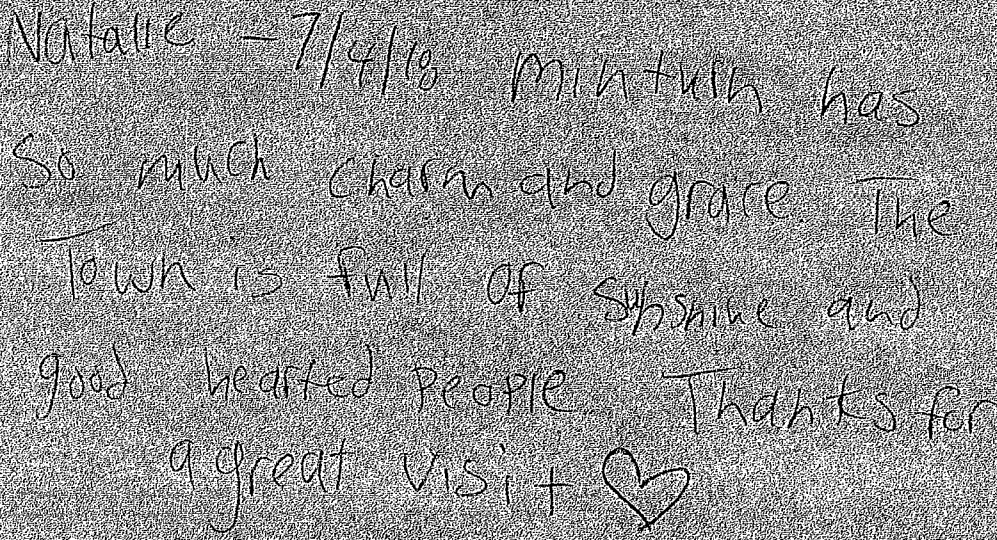 Natalie - 7/4/18 Minturn has
So much charm and grace. The
Town is full of sunshine and
good hearted people. Thanks for
a great visit ♡